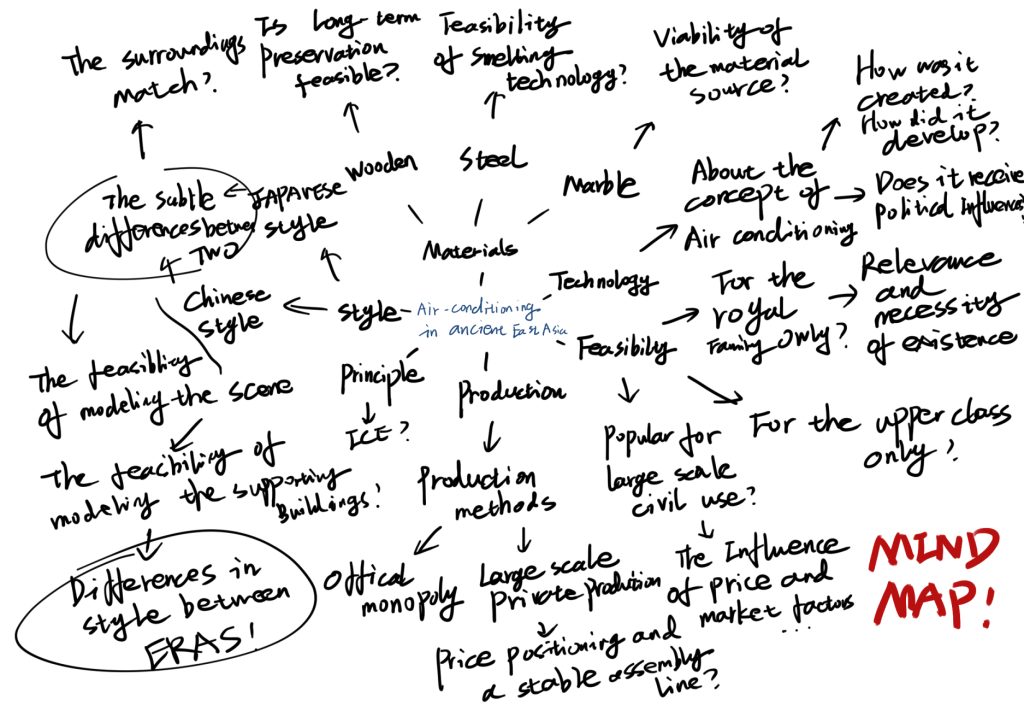 The surroundings
match?
Is Long-term
Preservation
feasible?
Feasibility
of smelting
technology?
Viability of
the material
source?
How was it
created?
How did it
develop?
The subtle
differences between
TWO
JAPANESE
style
Wooden
Steel
Marble
About the
concept of
Air conditioning
Does it receive
political influences
Materials
Technology
Chinese
style
style
Air-conditioning
in ancient East Asia
Feasibility
For the
royal
Family Only?
Relevance
and
necessity
of existence
The feasibliny
of modeling the scene
Principle
ICE?
Production
Popular for
large scale
civil use?
For the upper class
only?
The feacibility of
modeling the supporting
Buildings?
Production
methods
Differences in
style between
ERAS!
Offical
monopoly
Large scale
Private prodution
The Influence
of price and
market factors
...
Price positioning and
a stable assembly
line?
MIND
MAP!